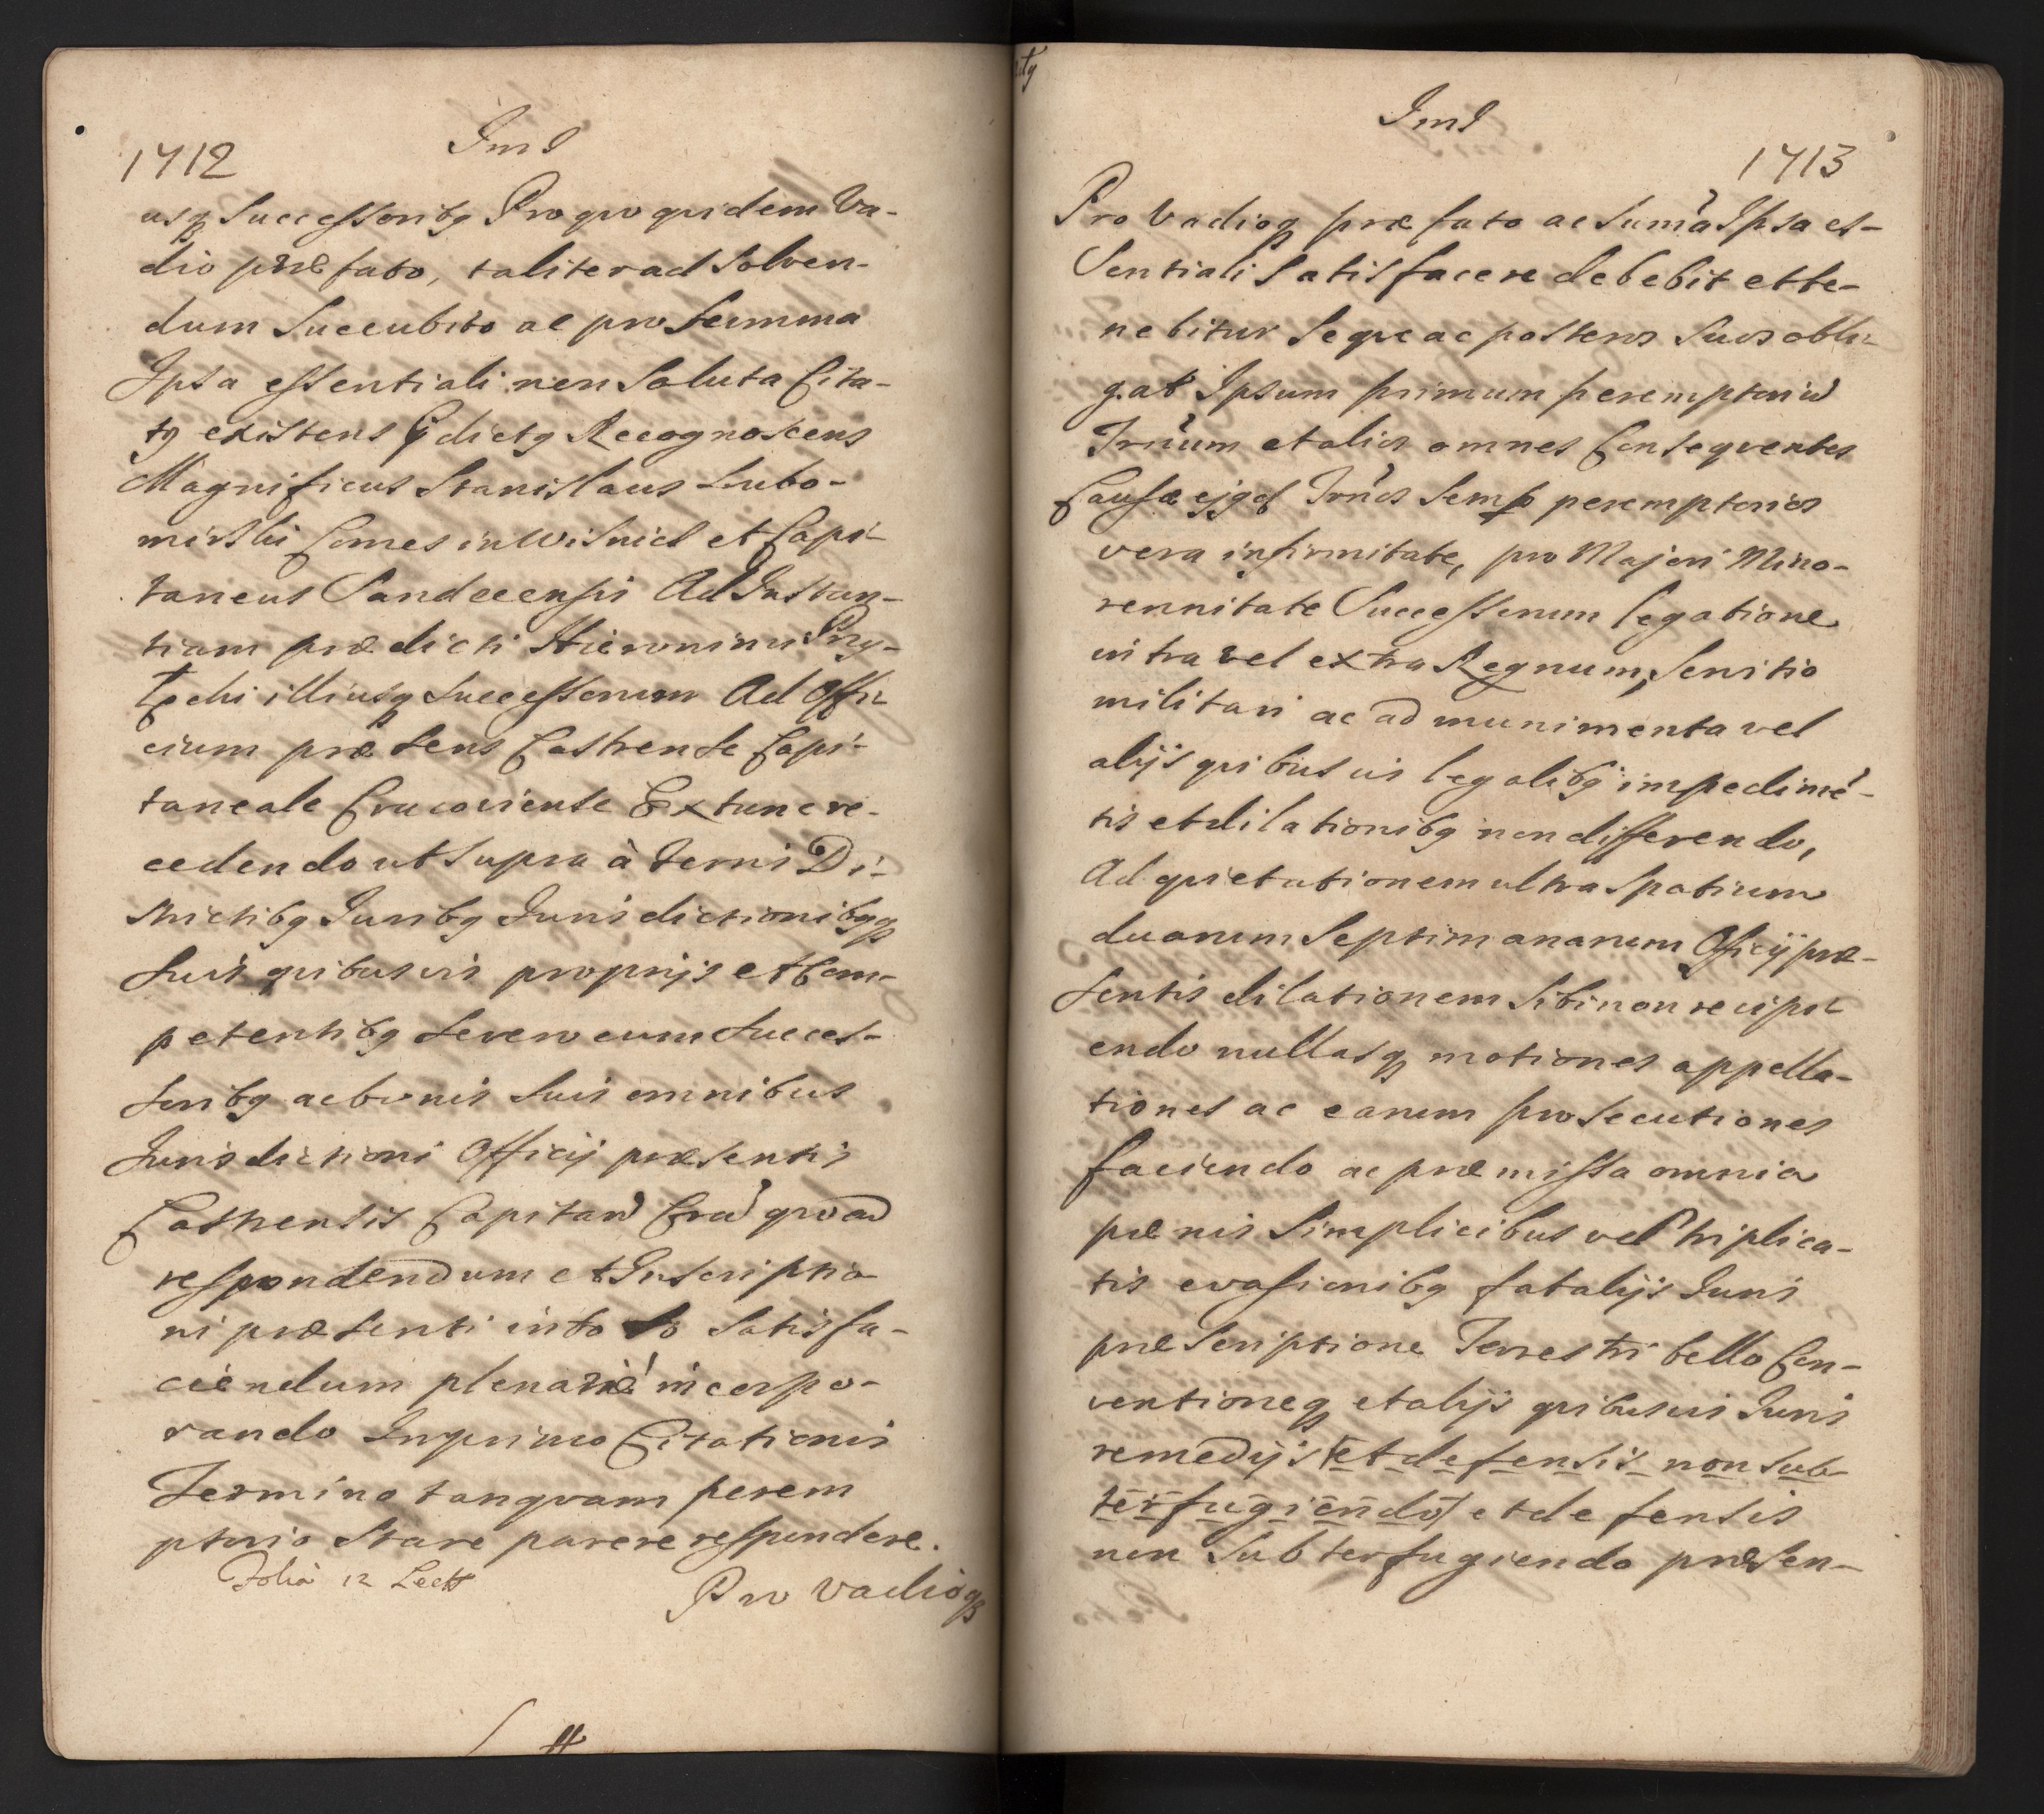 1712
Ind
usq Successoribg Pro quo quidem Va-
dio præfato, taliter ad Solven-
dum Succubito ac pro Summa
Ipsa essentiali non Soluta Cita-
tg existens Idictg Recognoscens
Magnificus Stanislaus Lubo-
mirski Comes in Wisnicz et Capi-
taneus Sandecensis Ad Instan-
tiam prædicti Hieronimi Przy-
łęcki illiusq Successorum Ad Offi-
cium præsens Castrense Capi-
taneale Cracoviense Ex tunc re-
cedendo ut supra à Terris Di-
strictibg Juribg Jurisdictionibgq
Suis quibusvis proprijs et Com-
petentibg Severo cum Succes-
soribg ac bonis Suis omnibus
Jurisdictioni Officij præsentis
Castrensis Capitan Crac quoad
respondendum et Inscriptio
ni præsenti in toto Satisfa-
ciendum plenariè incorpo-
rando In primo Citationis
Termino tanquam perem
ptorio Stare parere respondere.
Folia 12 Lect
Pro Vadioq
Ind
1713
Pro Vadioq præfato ac Summa Ipsa es-
Sentiali Satisfacere debebit et te-
nebitur Seque ac posteros Suos obli-
gat Ipsum primum peremptoriu
Trnum et alios omnes Consequentes
Causæ ejgd Trnos Semp peremptorios
vera infirmitate, pro Majori Mino-
rennitate Successorum legatione
intra vel extra Regnum, Servitio
militari ac ad munimenta vel
alijs quibusvis legalibg impedime-
tis et dilationibg non differendo,
Ad quietationem ultra Spatium
duarum Septimanarum Officij præ-
sentis dilationem Sibi non recipi-
endo nullasq motiones appella-
tiones ac earum prosecutiones
faciendo ac præmissa omnia
pænis Simplicibus vel triplica-
tis evasionibg fatalijs Juris
præscriptione Terrestri bello Con-
ventioneq et alijs quibusvis Juris
remedijs (et defensis non sub-
terfugiendo) et defensis
non Subterfugiendo præsen-